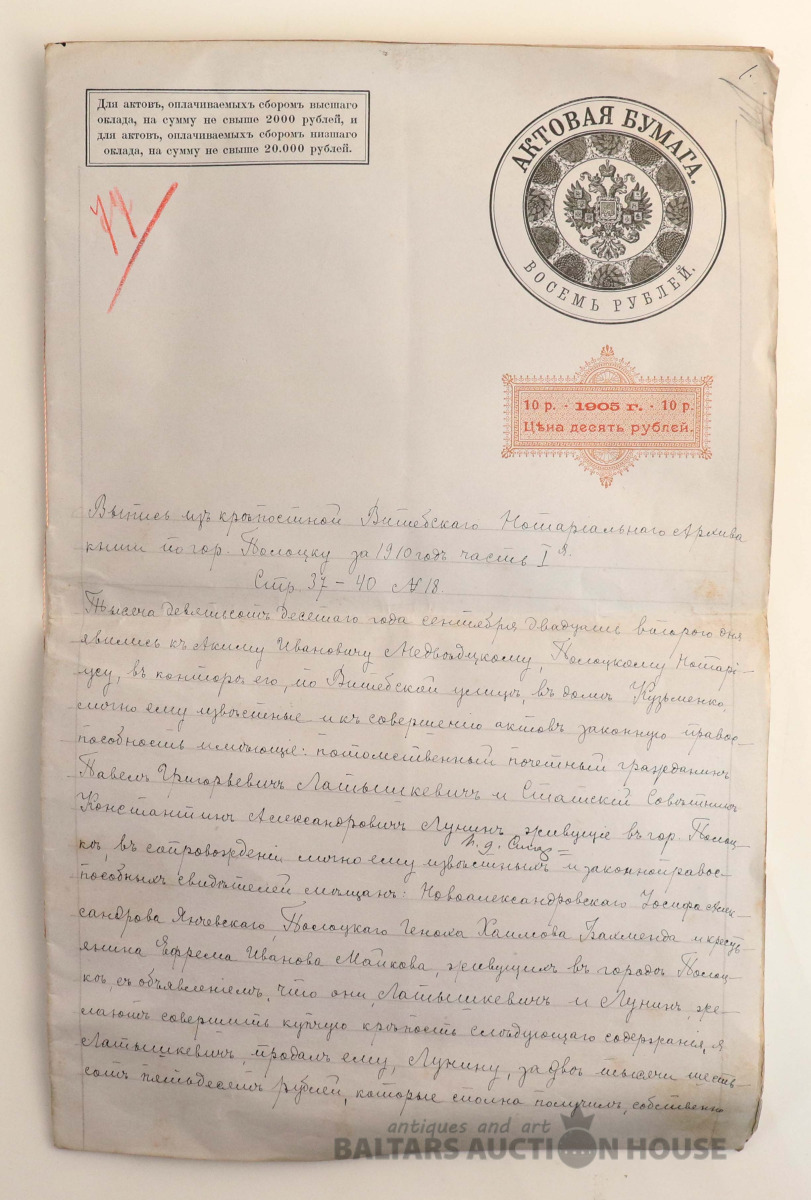 1.
Для актовъ, оплачиваемыхъ сборомъ высшаго
оклада, на сумму не свыше 2000 рублей, и
для актовъ, оплачиваемыхъ сборомъ низшаго
оклада, на сумму не свыше 20.000 рублей.
АКТОВАЯ БУМАГА.
ВОСЕМЬ РУБЛЕЙ.
10 р. · 1905 г. · 10 р.
Цѣна десять рублей.
Выпись изъ крѣпостной Витебскаго Нотаріальнаго Архива
книги по гор. Полоцку за 1910 годъ часть I я.
Стр. 37-40 № 18
Тысяча девятьсотъ десятаго года сентября двадцать втораго дня
явились къ Акиму Ивановичу Медвѣдцкому, Полоцкому Нотарі-
усу, въ контору его, по Витебской улицѣ, въ домѣ Кузьменко,
лично ему извѣстные и къ совершенію актовъ законную правос-
пособность имѣющіе: потомственный почетный гражданинъ
Павелъ Григорьевичъ Латышкевичъ и Статскій Совѣтникъ
Константинъ Александровичъ Лунинъ, живущіе въ гор. Полоц-
кѣ, въ сопровожденіи лично ему извѣстныхъ и законноправос-
пособныхъ свидѣтелей мѣщанъ: Новоалександровскаго Іосифа Алек-
сандрова Янчевскаго, Полоцкаго Геноха Хаимова и кресть-
янина Ефрема Иванова Майкова, живущихъ въ городѣ Полоц-
кѣ, съ объявленіемъ, что они, Латышкевичъ и Лунинъ, же-
лаютъ совершить купчую крѣпость слѣдующаго содержанія, я
Латышкевичъ, продалъ ему, Лунину, за двѣ тысячи шесть-
сотъ пятьдесятъ рублей, которые сполна получилъ, собственно
antiques and art
BALTARS AUCTION HOUSE